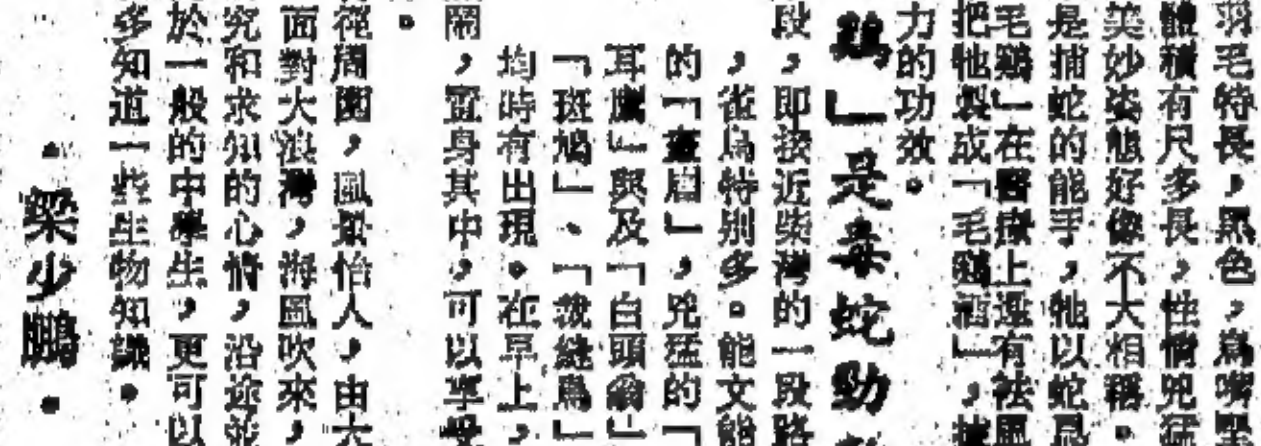 羽毛特長，黑色，鳥嘴堅
體積有尺多長，性情兇猛
美妙姿態好像不大相稱。
是捕蛇的能手，牠以蛇爲
毛鷄」在醫療上還有祛風
把牠製成「毛鷄酒」，據
力的功效。
鷄」是毒蛇勁
段，即接近柴灣的一段路
，雀鳥特别多。能文能
的「畫眉」，兇猛的「
耳鷹」與及「白頭翁」
「斑鳩」、「裁縫鳥」
均時有出現。在早上，
鬧，置身其中，可以享受
。
徑周圍，風景怡人，由大
面對大浪灣，海風吹來，
究和求知的心情，沿途並
於一般的中學生，更可以
多知道一些生物知識。
·梁少鵬·